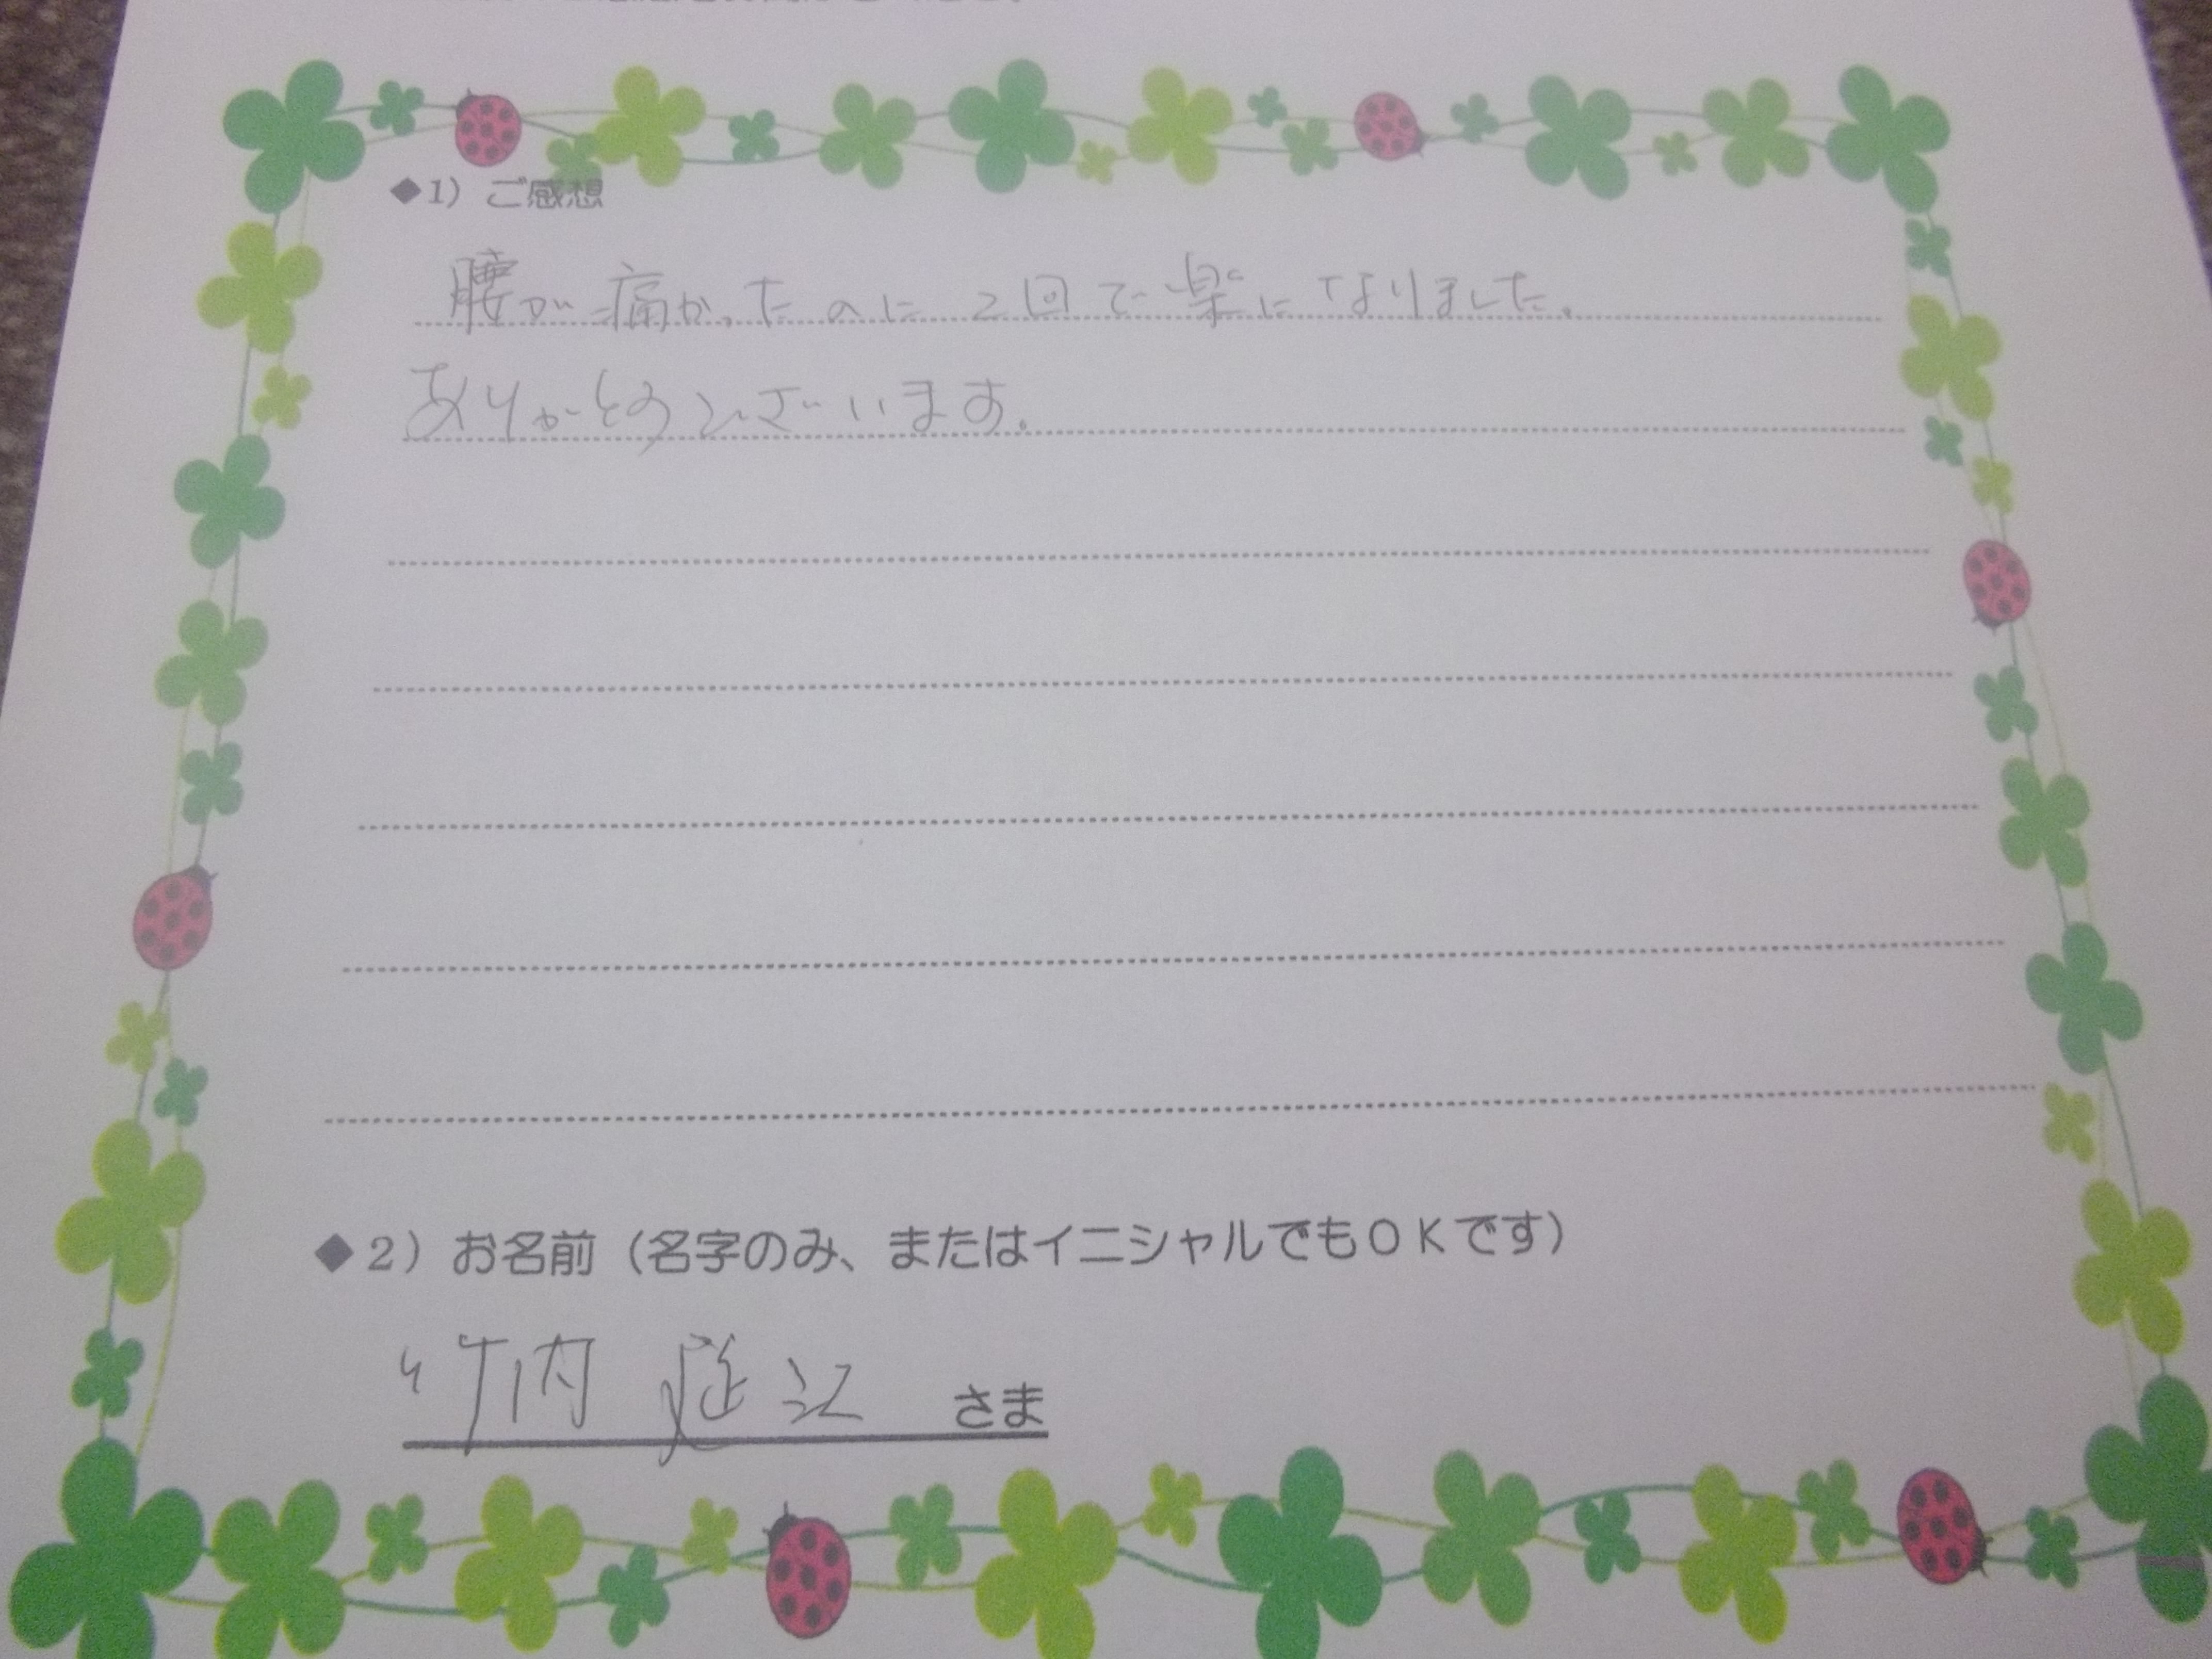 ◆1）ご感想
腰が痛かったのに2回で楽になりました。
ありがとうございます。
◆2）お名前（名字のみ、またはイニシャルでもＯＫです）
竹内 延江 さま